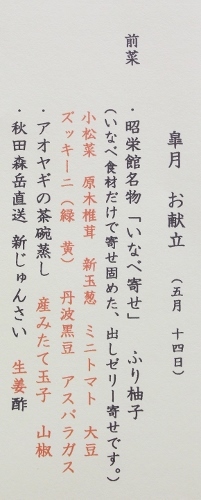 皐月　お献立　（五月　十四日）
前菜
・昭栄館名物「いなべ寄せ」　ふり柚子
（いなべ食材だけで寄せ固めた、出しゼリー寄せです。）
小松菜　原木椎茸　新玉葱　ミニトマト　大豆
ズッキーニ（緑　黄）　丹波黒豆　アスパラガス
・アオヤギの茶碗蒸し　産みたて玉子　山椒
・秋田森岳直送　新じゅんさい　生姜酢